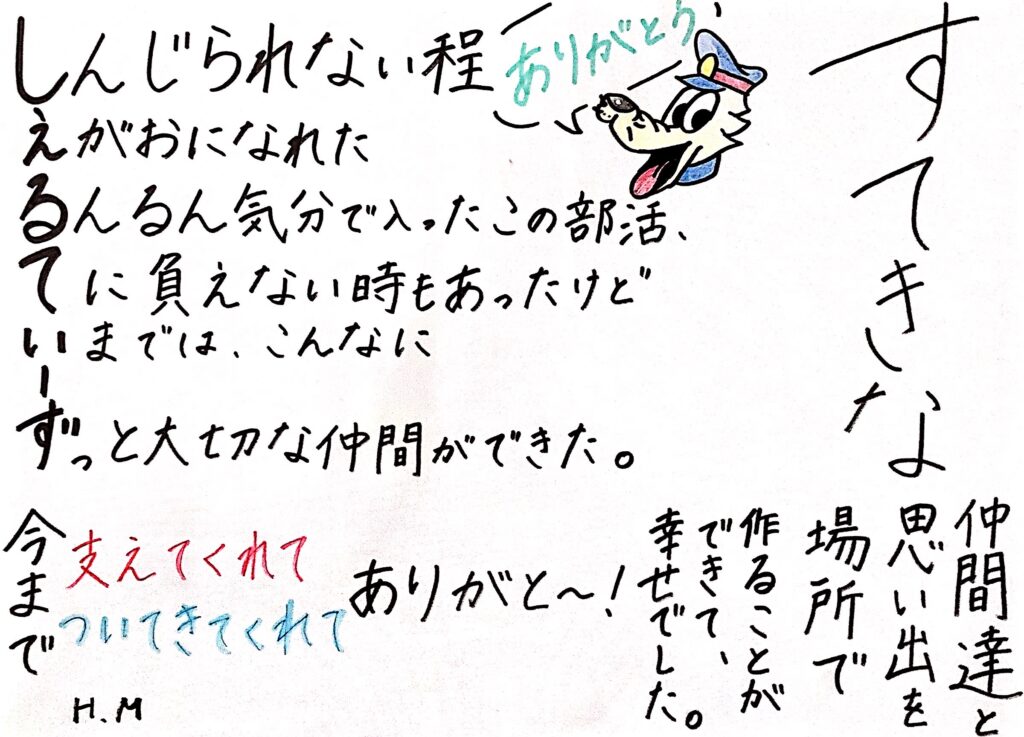 しんじられない程
ありがとう
えがおになれた
るんるん気分で入ったこの部活、
てに負えない時もあったけど
ぃまでは、こんなに
ー
ずっと大切な仲間ができた。
今まで
支えてくれて
ついてきてくれて
ありがと〜！
H.M
すてきな
仲間達と
思い出を
場所で
作ることが
できて、
幸せでした。